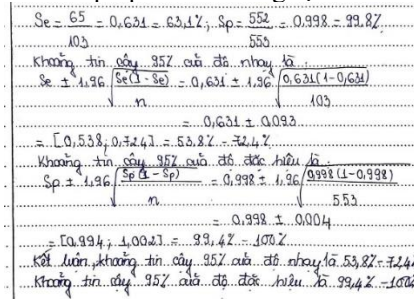 Se = 65/103 = 0,631 = 63,1%; Sp = 552/553 = 0,998 = 99,8%
Khoảng tin cậy 95% của độ nhạy là
Se ± 1,96 √(Se(1 - Se)/n) = 0,631 ± 1,96 √(0,631(1-0,631)/103)
= 0,631 ± 0,093
= [0,538; 0,724] = 53,8% - 72,4%
Khoảng tin cậy 95% của độ đặc hiệu là
Sp ± 1,96 √(Sp(1 - Sp)/n) = 0,998 ± 1,96 √(0,998(1-0,998)/553)
= 0,998 ± 0,004
= [0,994; 1,002] = 99,4% - 100%
Kết luận, khoảng tin cậy 95% của độ nhạy là 53,8% - 72,4
Khoảng tin cậy 95% của độ đặc hiệu là 99,4% - 100